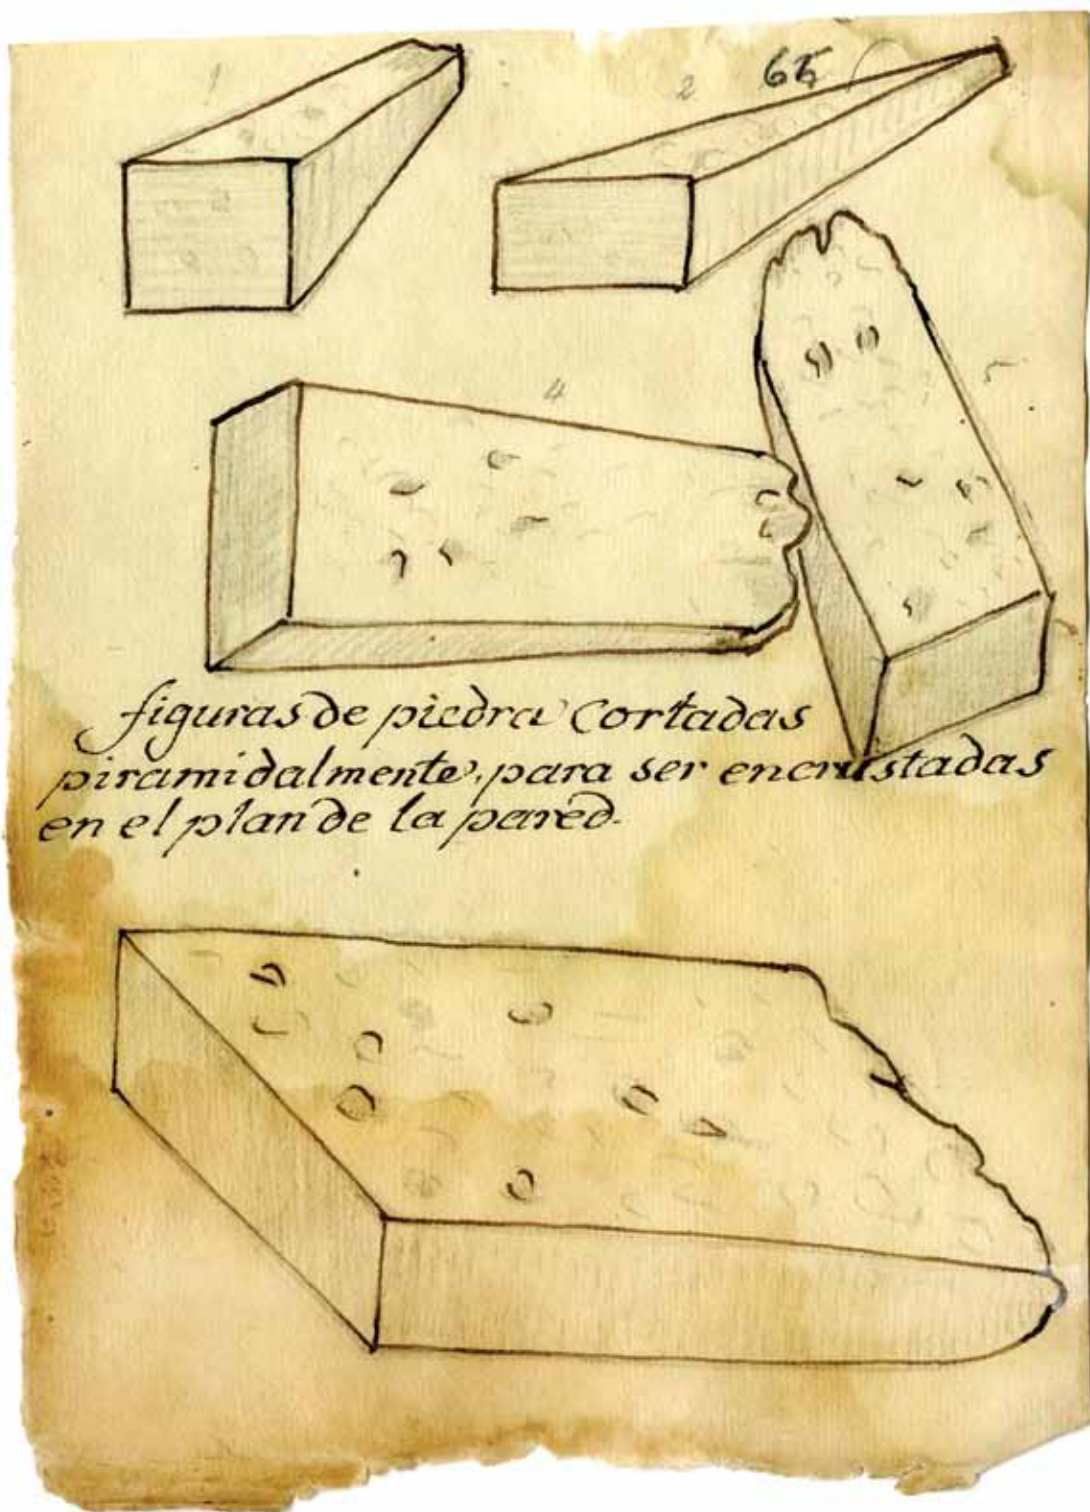 1
2
65
4
5
figuras de piedra Cortadas
piramidalmente, para ser encrustadas
en el plan de la pared.